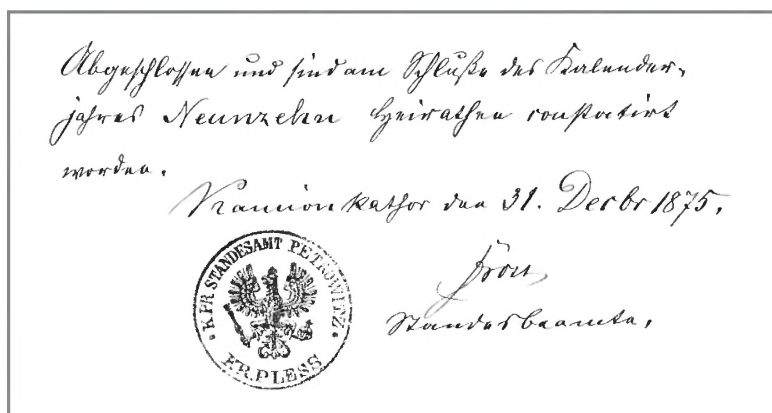 Abgeschlossen und sind am Schluße des Kalender-
jahres Neunzehn Heirathen constatirt
worden.
den 31. Decbr 1875.
Standesbeamte.
K PR STANDESAMT PETROWITZ
KR. PLESS